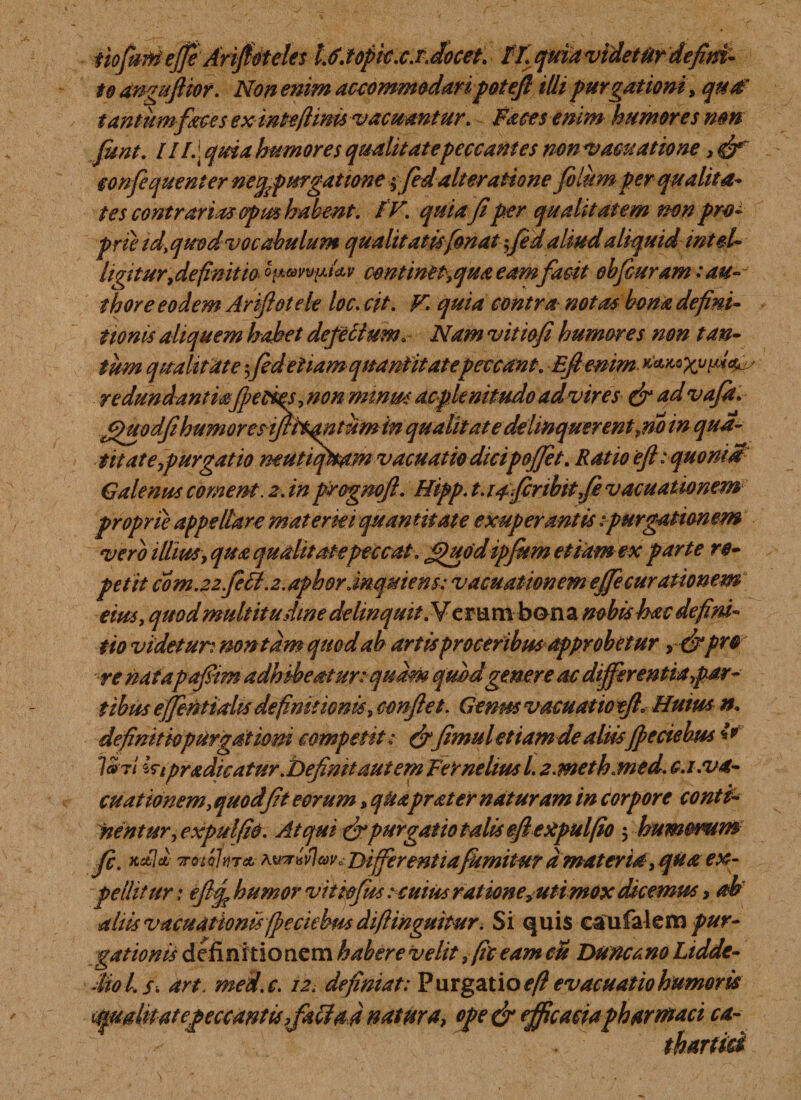 tiosum esse Aristoteles l.6.topic.c.1.docet. II. quia videtur defini-
to angustior. Non enim accommodari potest illi purgationi, qua
tantum fæces ex intestinis vacuantur. Fæces enim humores non
sunt. III. quia humores qualitate peccantes non vacuatione, &
consequenter neq; purgatione; sed alteratione solùm per qualita-
tes contrarias opus habent. IV. quia si per qualitatem non pro-
priè id, quod vocabulum qualitatis sonat; sed aliud aliquid intel-
ligitur, definitio ὁμωνυμίαν continet, quæ eam facit obscuram: au-
thore eodem Aristotele loc. cit. V. quia contra notas bonæ defini-
tionis aliquem habet defectum. Nam vitiosi humores non tan-
tùm qualitate; sed etiam quantitate peccant. Est enim κακοχυμία
redundantiæ species, non minus ac plenitudo ad vires & ad vasa.
Quod si humores isti tantùm in qualitate delinquerent, nō in quā-
titate, purgatio neutiquam vacuatio dici posset. Ratio est: quoniā
Galenus coment. 2. in prognost. Hipp. t.14. scribit, se vacuationem
propriè appellare materiei quantitate exuperantis: purgationem
verò illius, quæ qualitate peccat. Quod ipsum etiam ex parte re-
petit cōm.22.sect.2.aphor.inquiens: vacuationem esse curationem
eius, quod multitudine delinquit. Verum bona nobis hæc defini-
tio videtur: non tàm quod ab artis proceribus approbetur, & pro
re nata passim adhibeatur: quàm quòd genere ac differentia, par-
tibus essentialis definitionis, constet. Genus vacuatio est. Huius n.
definitio purgationi competit: & simul etiam de aliis speciebus ἐν
τῷ τί ἐστι prædicatur. Definit autem Fernelius l. 2.meth.med. c.1.va-
cuationem, quod sit eorum, quæ præter naturam in corpore conti-
nentur, expulsio. Atqui & purgatio talis est expulsio; humorum
sc. κατὰ ποιότητα λυπούντων. Differentia sumitur à materia, quæ ex-
pellitur: estq; humor vitiosus: cuius ratione, uti mox dicemus, ab
aliis vacuationis speciebus distinguitur. Si quis causalem pur-
gationis definitionem habere velit, sic eam cū Duncano Lidde-
lio l. 5. art. med. c. 12. definiat: Purgatio est evacuatio humoris
qualitate peccantis, facta à natura, ope & efficacia pharmaci ca-
thartici